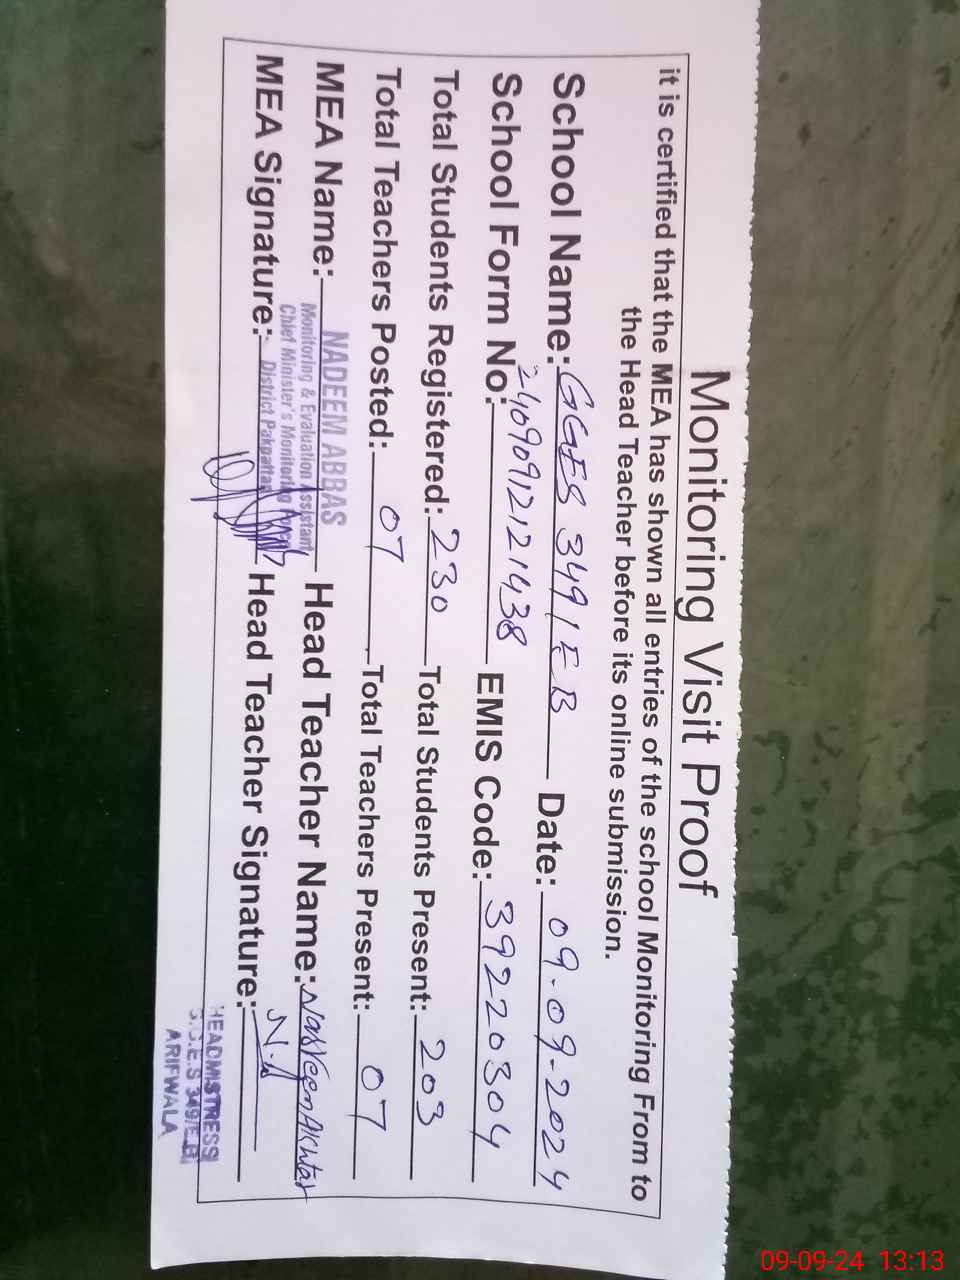 Monitoring Visit Proof
it is certified that the MEA has shown all entries of the school Monitoring From to
the Head Teacher before its online submission.
School Name: GGES 349/EB Date: 09-09-2024
School Form No: 24090912121438 EMIS Code: 39220304
Total Students Registered: 230 Total Students Present: 203
Total Teachers Posted: 07 Total Teachers Present: 07
MEA Name: NADEEM ABBAS Head Teacher Name: Nasreen Akhtar
Monitoring & Evaluation Assistant
Chief Minister's Monitoring
District Pakpattan
MEA Signature: Head Teacher Signature: N.A
HEADMISTRESS
G.G.E.S 349/E.B
ARIFWALA
09-09-24 13:13